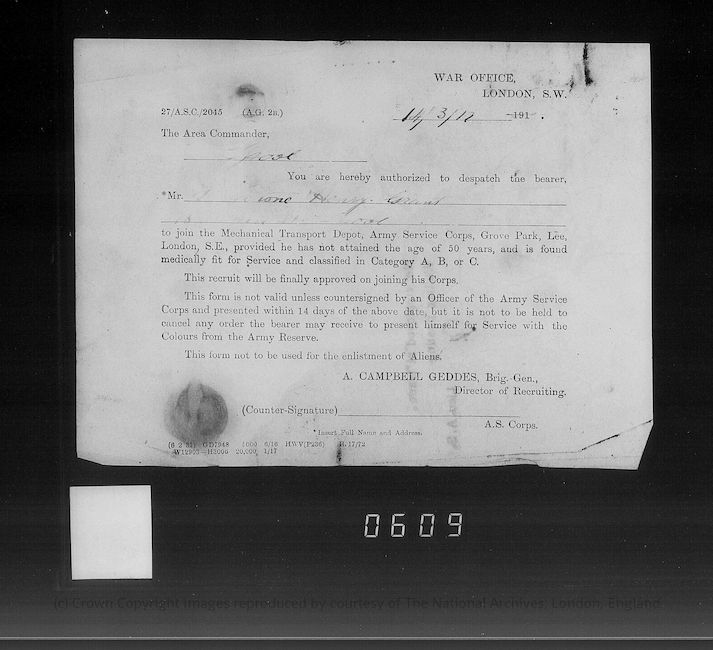 WAR OFFICE,
LONDON, S.W.
27/A.S.C./2045 (A.G. 2B.)
14/3/17 191 .
The Area Commander,
You are hereby authorized to despatch the bearer,
*Mr. Henry Grant
to join the Mechanical Transport Depot, Army Service Corps, Grove Park, Lee,
London, S.E., provided he has not attained the age of 50 years, and is found
medically fit for Service and classified in Category A, B, or C.
This recruit will be finally approved on joining his Corps.
This form is not valid unless countersigned by an Officer of the Army Service
Corps and presented within 14 days of the above date, but it is not to be held to
cancel any order the bearer may receive to present himself for Service with the
Colours from the Army Reserve.
This form not to be used for the enlistment of Aliens.
A. CAMPBELL GEDDES, Brig.-Gen.,
Director of Recruiting.
(Counter-Signature)
A.S. Corps.
*Insert Full Name and Address.
(6 2 31) GD7948 1000 6/16 HWV(P236) H.17/72
W12903—H3006 20,000 1/17
0609
(c) Crown Copyright Images reproduced by courtesy of The National Archives, London, England.